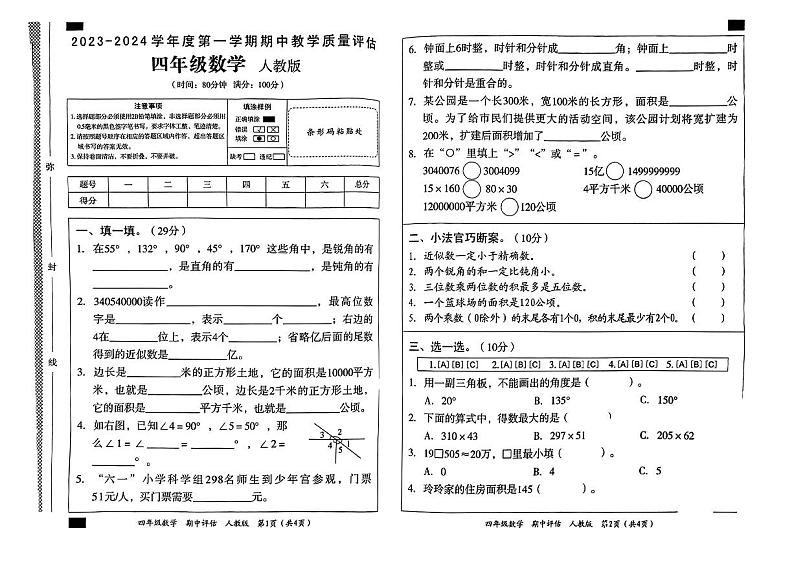 2023-2024学年度第一学期期中教学质量评估
四年级数学 人教版
(时间：80分钟 满分：100分)
注意事项
1.选择题部分必须使用2B铅笔填涂，非选择题部分必须用
0.5毫米的黑色签字笔书写，要求字体工整、笔迹清楚。
2.请按照题号顺序在相应的答题区域内作答，超出答题区
域书写的答案无效。
3.保持卷面清洁，不要折叠、不要弄破。
填涂样例
正确填涂
错误
填涂
缺考 违纪
条形码粘贴处
题号 一 二 三 四 五 六 总分
得分
弥
封
线
一、填一填。(29分)
1. 在55°，132°，90°，45°，170°这些角中，是锐角的有
____________，是直角的有____________，是钝角的有
____________。
2. 340540000读作____________________，最高位数
字是__________，表示________个________；右边的
4在________位上，表示4个________；省略亿后面的尾数
得到的近似数是________亿。
3. 边长是________米的正方形土地，它的面积是10000平方
米，也就是________公顷，边长是2千米的正方形土地，
它的面积是________平方千米，也就是________公顷。
4. 如右图，已知∠4＝90°，∠5＝50°，那
么∠1＝∠______＝________°，∠2＝
________°。
3 2 1 4 5
5. “六一”小学科学组298名师生到少年宫参观，门票
51元/人，买门票需要__________元。
四年级数学 期中评估 人教版 第1页(共4页)
6. 钟面上6时整，时针和分针成__________角；钟面上__________时
整或__________时整，时针和分针成直角。__________时整，时
针和分针是重合的。
7. 某公园是一个长300米，宽100米的长方形，面积是__________公
顷。为了给市民们提供更大的活动空间，该公园计划将宽扩建为
200米，扩建后面积增加了__________公顷。
8. 在“○”里填上“>”“<”或“=”。
3040076○3004099 15亿○1499999999
15×160○80×30 4平方千米○40000公顷
12000000平方米○120公顷
二、小法官巧断案。(10分)
1. 近似数一定小于精确数。 ( )
2. 两个锐角的和一定比钝角小。 ( )
3. 三位数乘两位数的积最多是五位数。 ( )
4. 一个篮球场的面积是120公顷。 ( )
5. 两个乘数(0除外)的末尾各有1个0，积的末尾最少有2个0。 ( )
三、选一选。(10分)
1.[A][B][C] 2.[A][B][C] 3.[A][B][C] 4.[A][B][C] 5.[A][B][C]
1. 用一副三角板，不能画出的角度是( )。
A. 20° B. 135° C. 150°
2. 下面的算式中，得数最大的是( )
A. 310×43 B. 297×51 C. 205×62
3. 19□505≈20万，□里最小填( )。
A. 0 B. 4 C. 5
4. 玲玲家的住房面积是145( )。
四年级数学 期中评估 人教版 第2页(共4页)